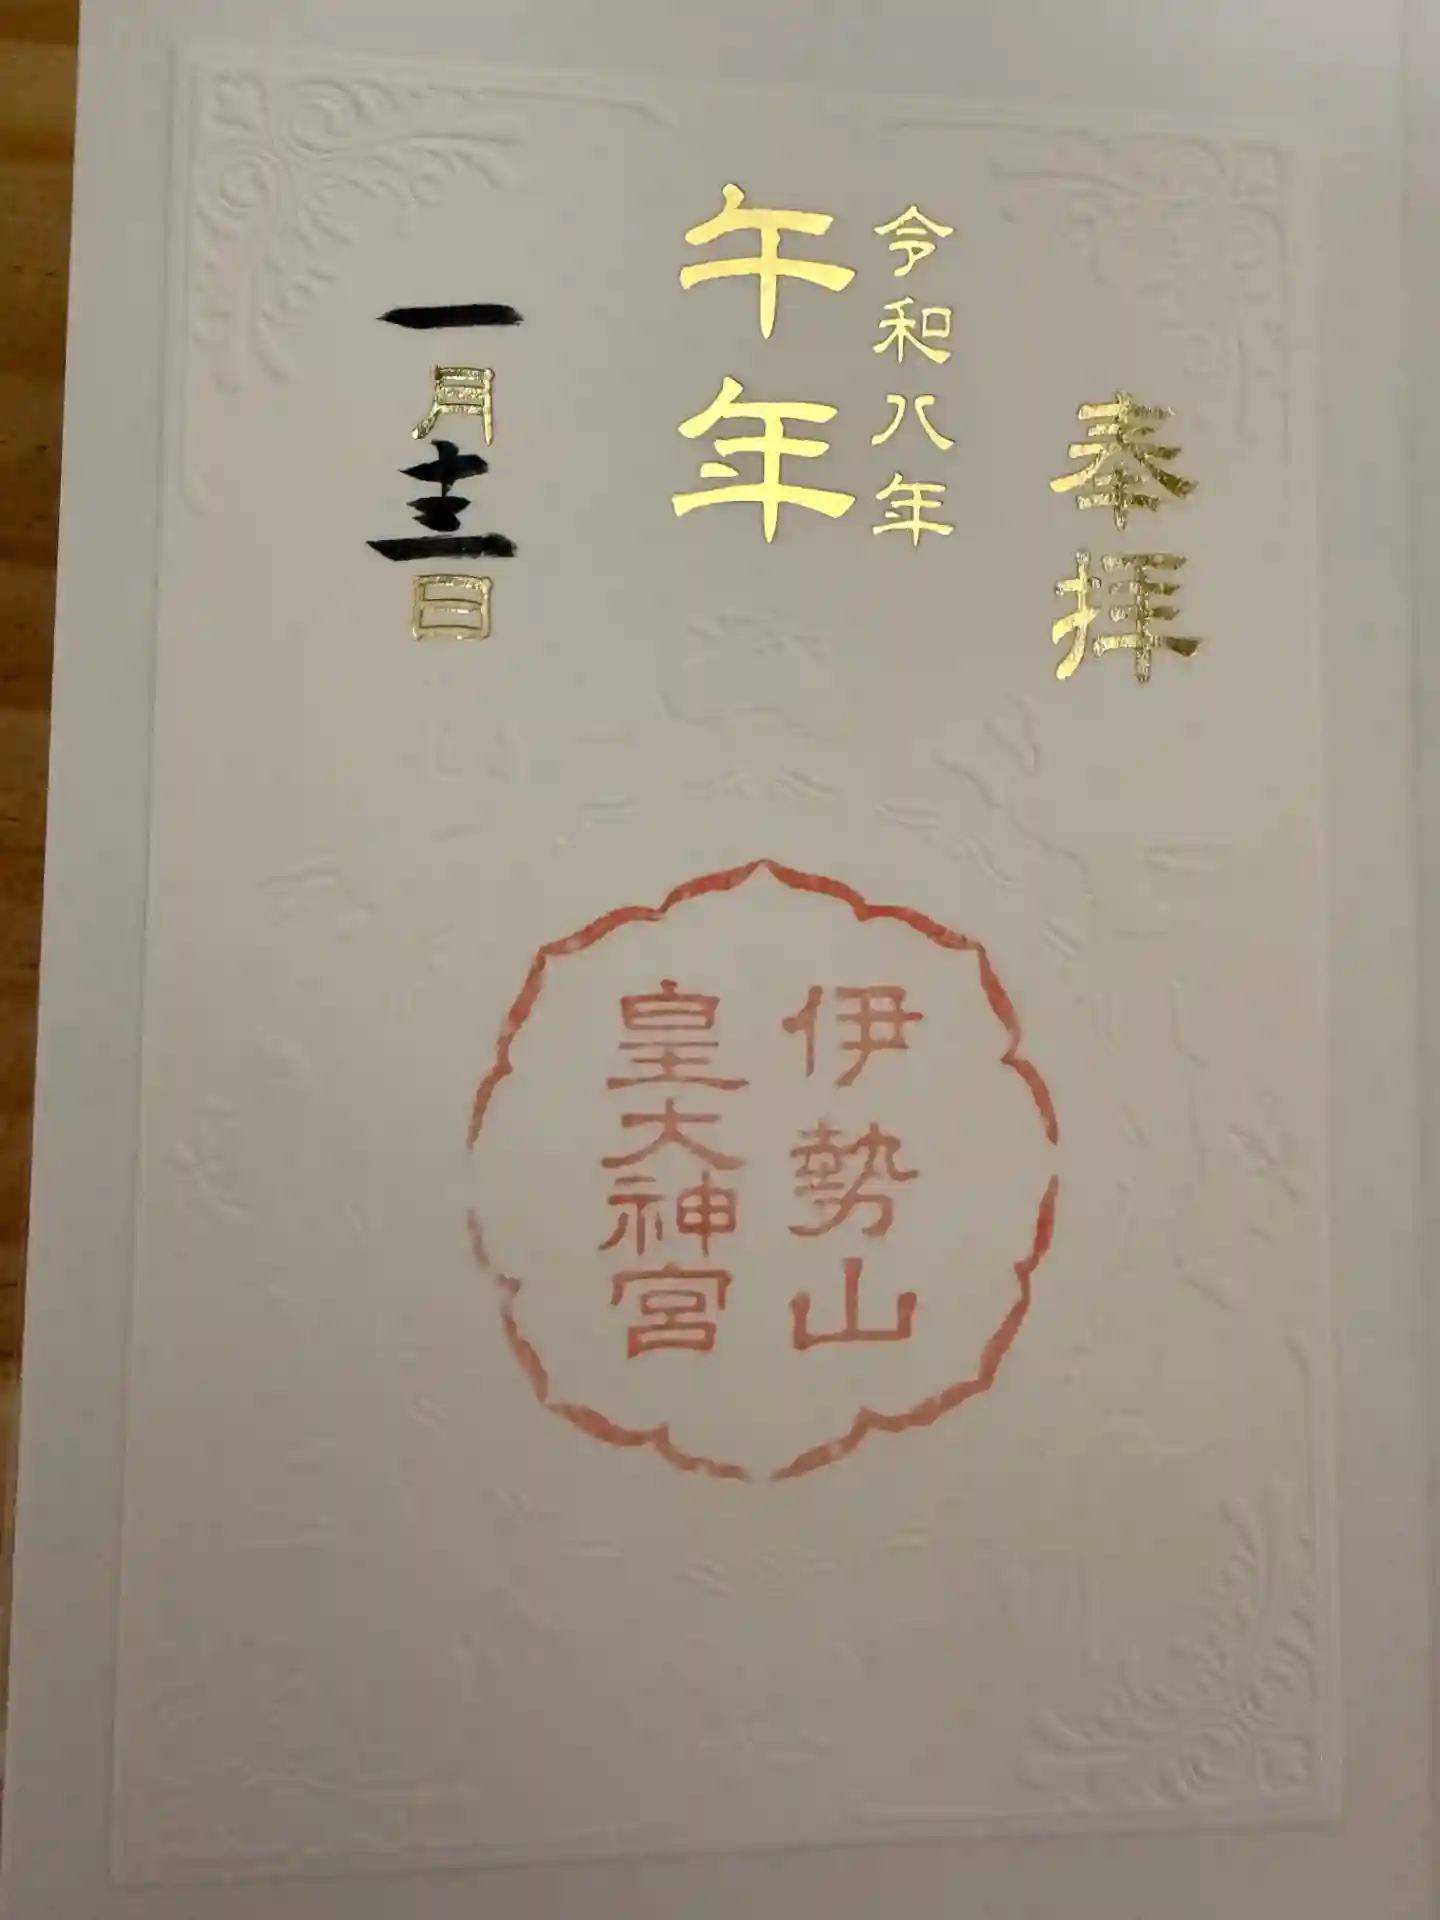 奉拝
令和八年
午年
一月十三日
伊勢山
皇大神宮